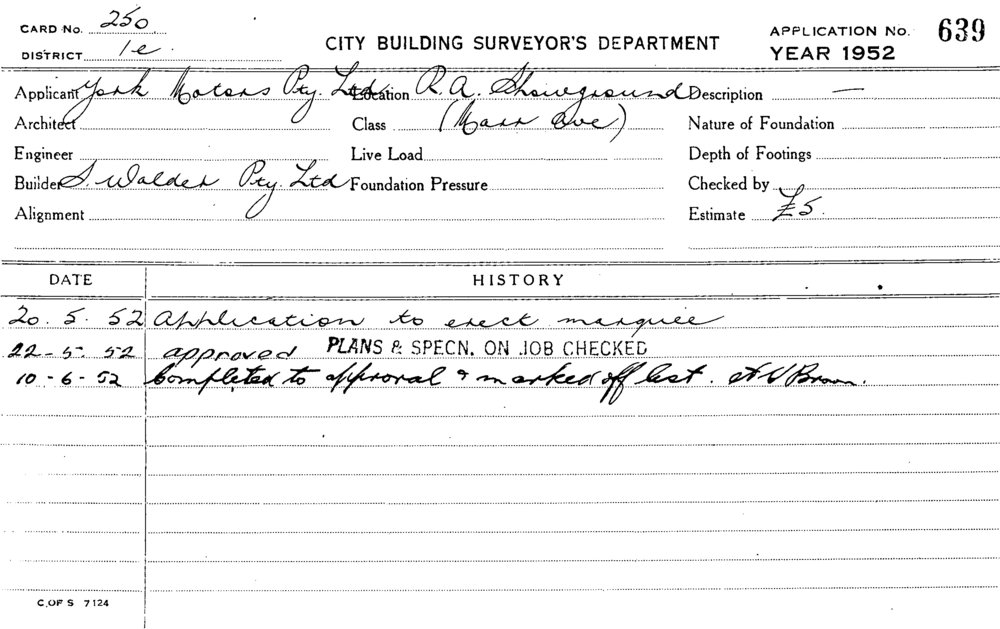 CARD No. 250
DISTRICT 1e.
CITY BUILDING SURVEYOR'S DEPARTMENT
APPLICATION No. 639
YEAR 1952
Applicant York Motors Pty. Ltd Location R.A. Showground Description —
Architect Class (Marr ave) Nature of Foundation
Engineer Live Load Depth of Footings
Builder S. Walder Pty. Ltd Foundation Pressure Checked by
Alignment Estimate £5.
DATE HISTORY
20. 5. 52 Application to erect marquee
22-5. 52 approved PLANS & SPECN. ON JOB CHECKED
10-6-52 Completed to approval & marked off list. Brown.
C. OF S 7124